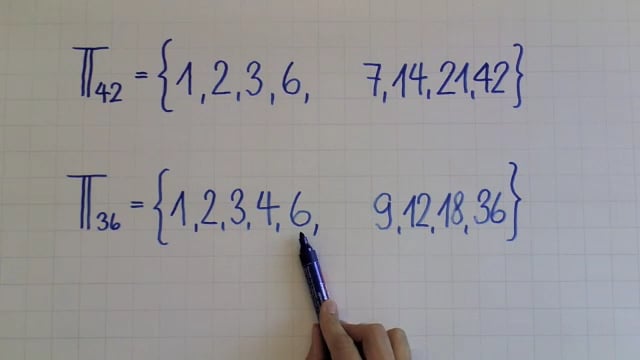 T₄₂ = {1, 2, 3, 6, 7, 14, 21, 42}
T₃₆ = {1, 2, 3, 4, 6, 9, 12, 18, 36}